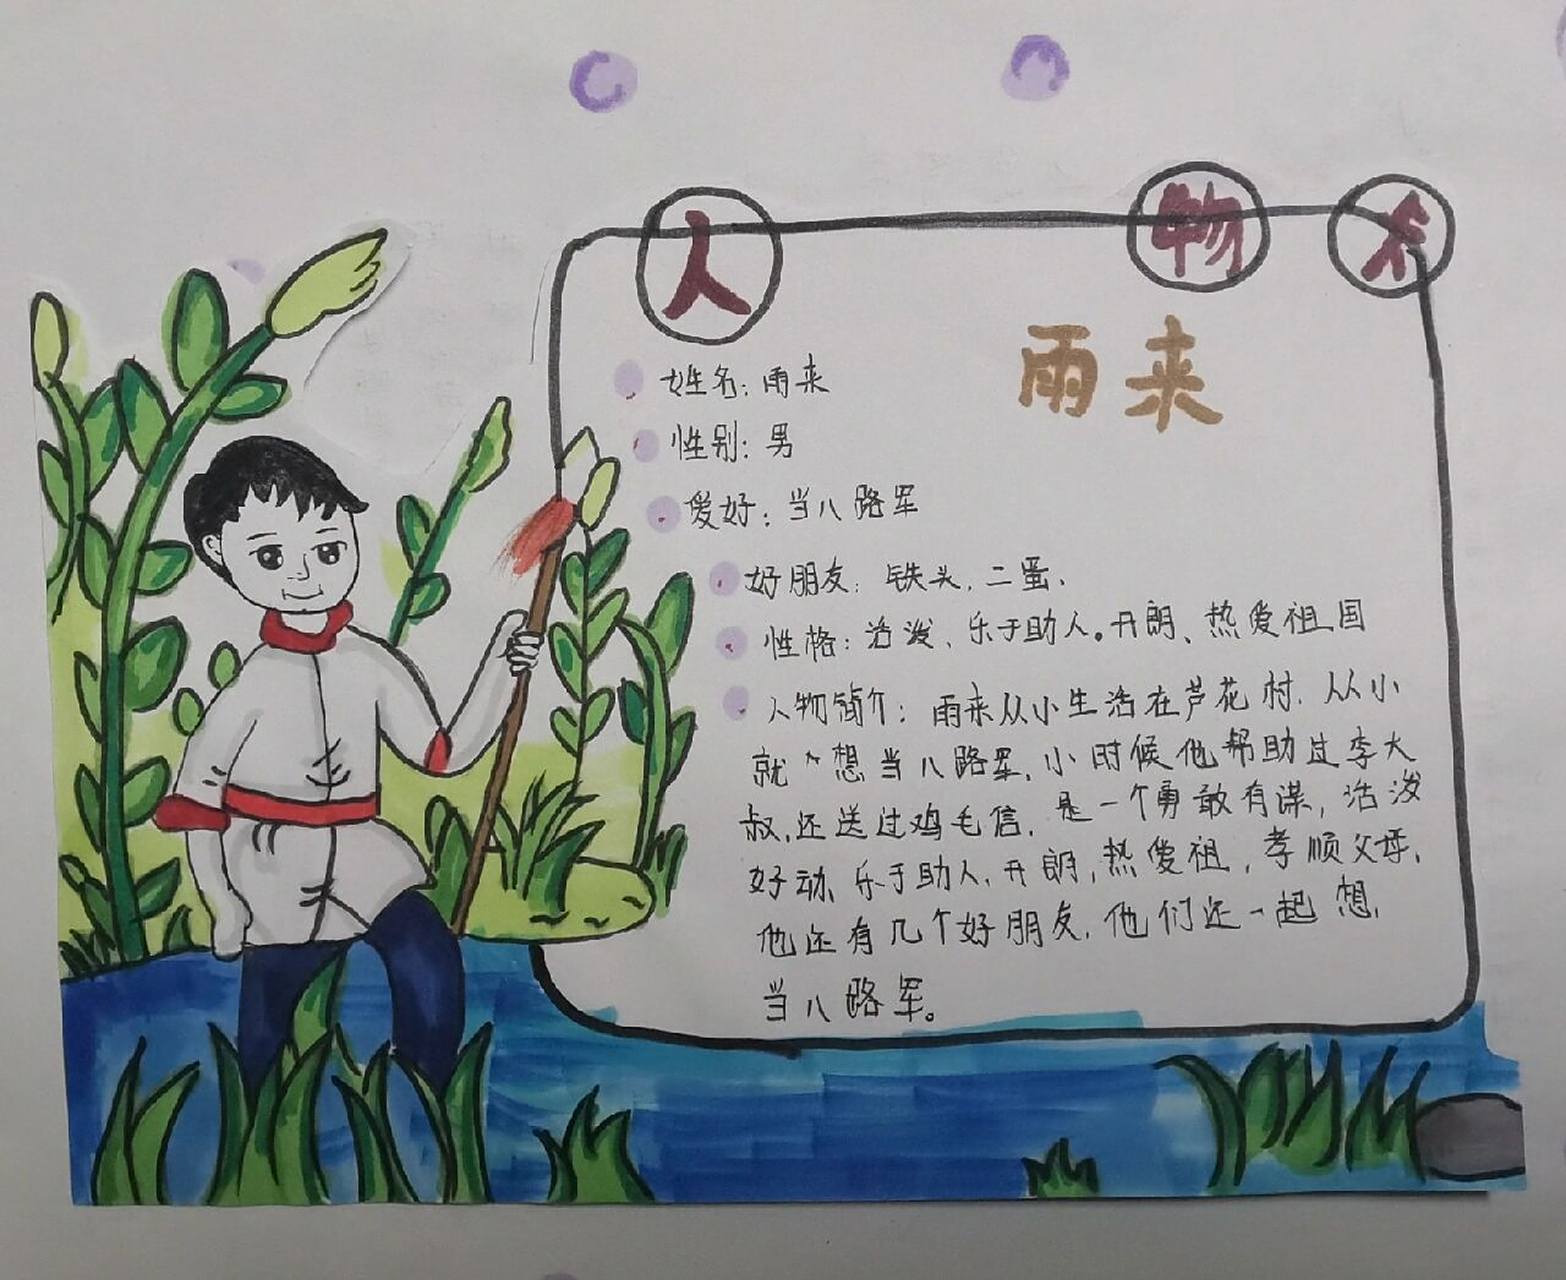 人 物 卡
雨来
姓名：雨来
性别：男
爱好：当八路军
好朋友：铁头，二蛋.
性格：活泼、乐于助人。开朗、热爱祖国
人物简介：雨来从小生活在芦花村. 从小
就想当八路军，小时候他帮助过李大
叔，还送过鸡毛信. 是一个勇敢有谋，活泼
好动、乐于助人、开朗，热爱祖，孝顺父母，
他还有几个好朋友，他们还一起想，
当八路军。